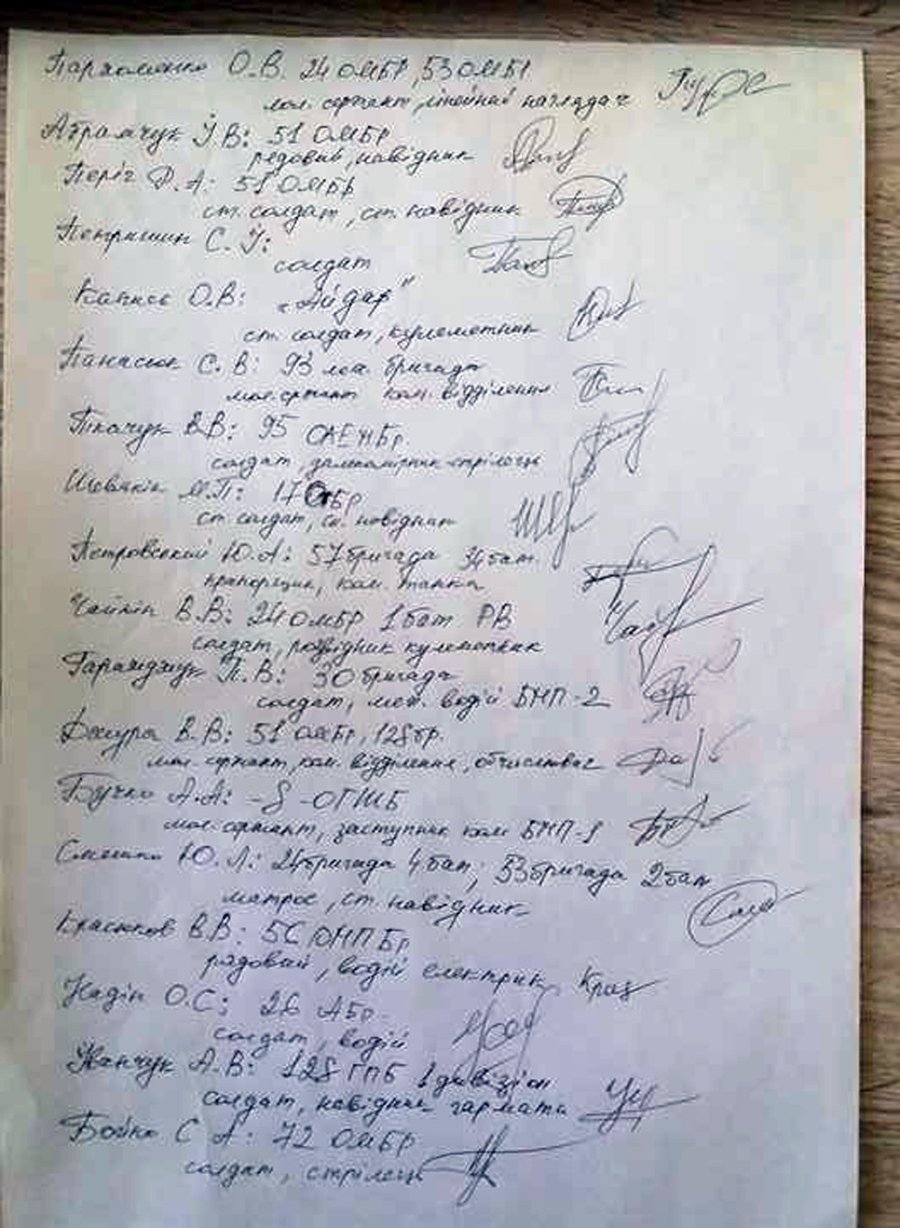 Пархоменко О.В. 24 ОМБР, 53 ОМБР
мол. сержант, лінейний наглядач
Абрамчук І.В: 51 ОМБР
редовий, навідник
Періг Р.А: 51 ОМБР
ст. солдат, ст. навідник
Петришин С. І:
солдат
О.В: „Айдар"
ст. солдат, кулеметник
Панасюк С. В: 93 мех. бригада
мол. сержант ком. відділення
Ткачук В.В: 95
солдат, стрілець
М.П: 17 ОТБР
ст. солдат, ст. навідник
Петровський Ю.А: 57 бригада 34 бат.
прапорщик, ком. танка
Чайкін В.В: 24 ОМБР 1 бат РВ
солдат, розвідник кулеметник
П.В: 30 бригада
солдат, мех. водій БМП-2
Джура В.В: 51 ОМБР, 128 бр.
мол. сержант, ком. відділення, обчислювач
Бучко А.А:
мол. сержант, заступник ком БМП-1
Ю.Л: 24 бригада 4 бат; 53 бригада 2 бат
матрос, ст. навідник
В.В:
рядовий, водій електрик
Надін О.С: 26 АБр.
солдат, водій
А.В: 128 ГПБ 1 дивізіон
солдат, навідник гармати
Бойко С А: 72 ОМБР
солдат, стрілець